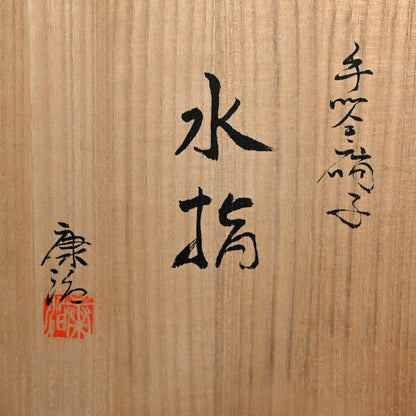 手吹硝子
水指
康治